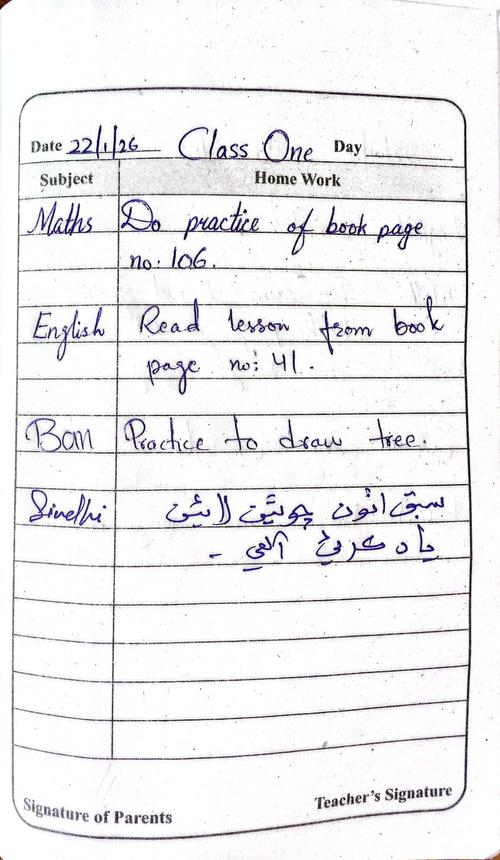 Date 22/1/26 Class One Day
Subject Home Work
Maths Do practice of book page
no. 106.
English Read lesson from book
page no: 41.
Practice to draw tree.
Sindhi سبق اٺون چوٿين لائين
ياد ڪرڻ آهي -
Signature of Parents Teacher's Signature